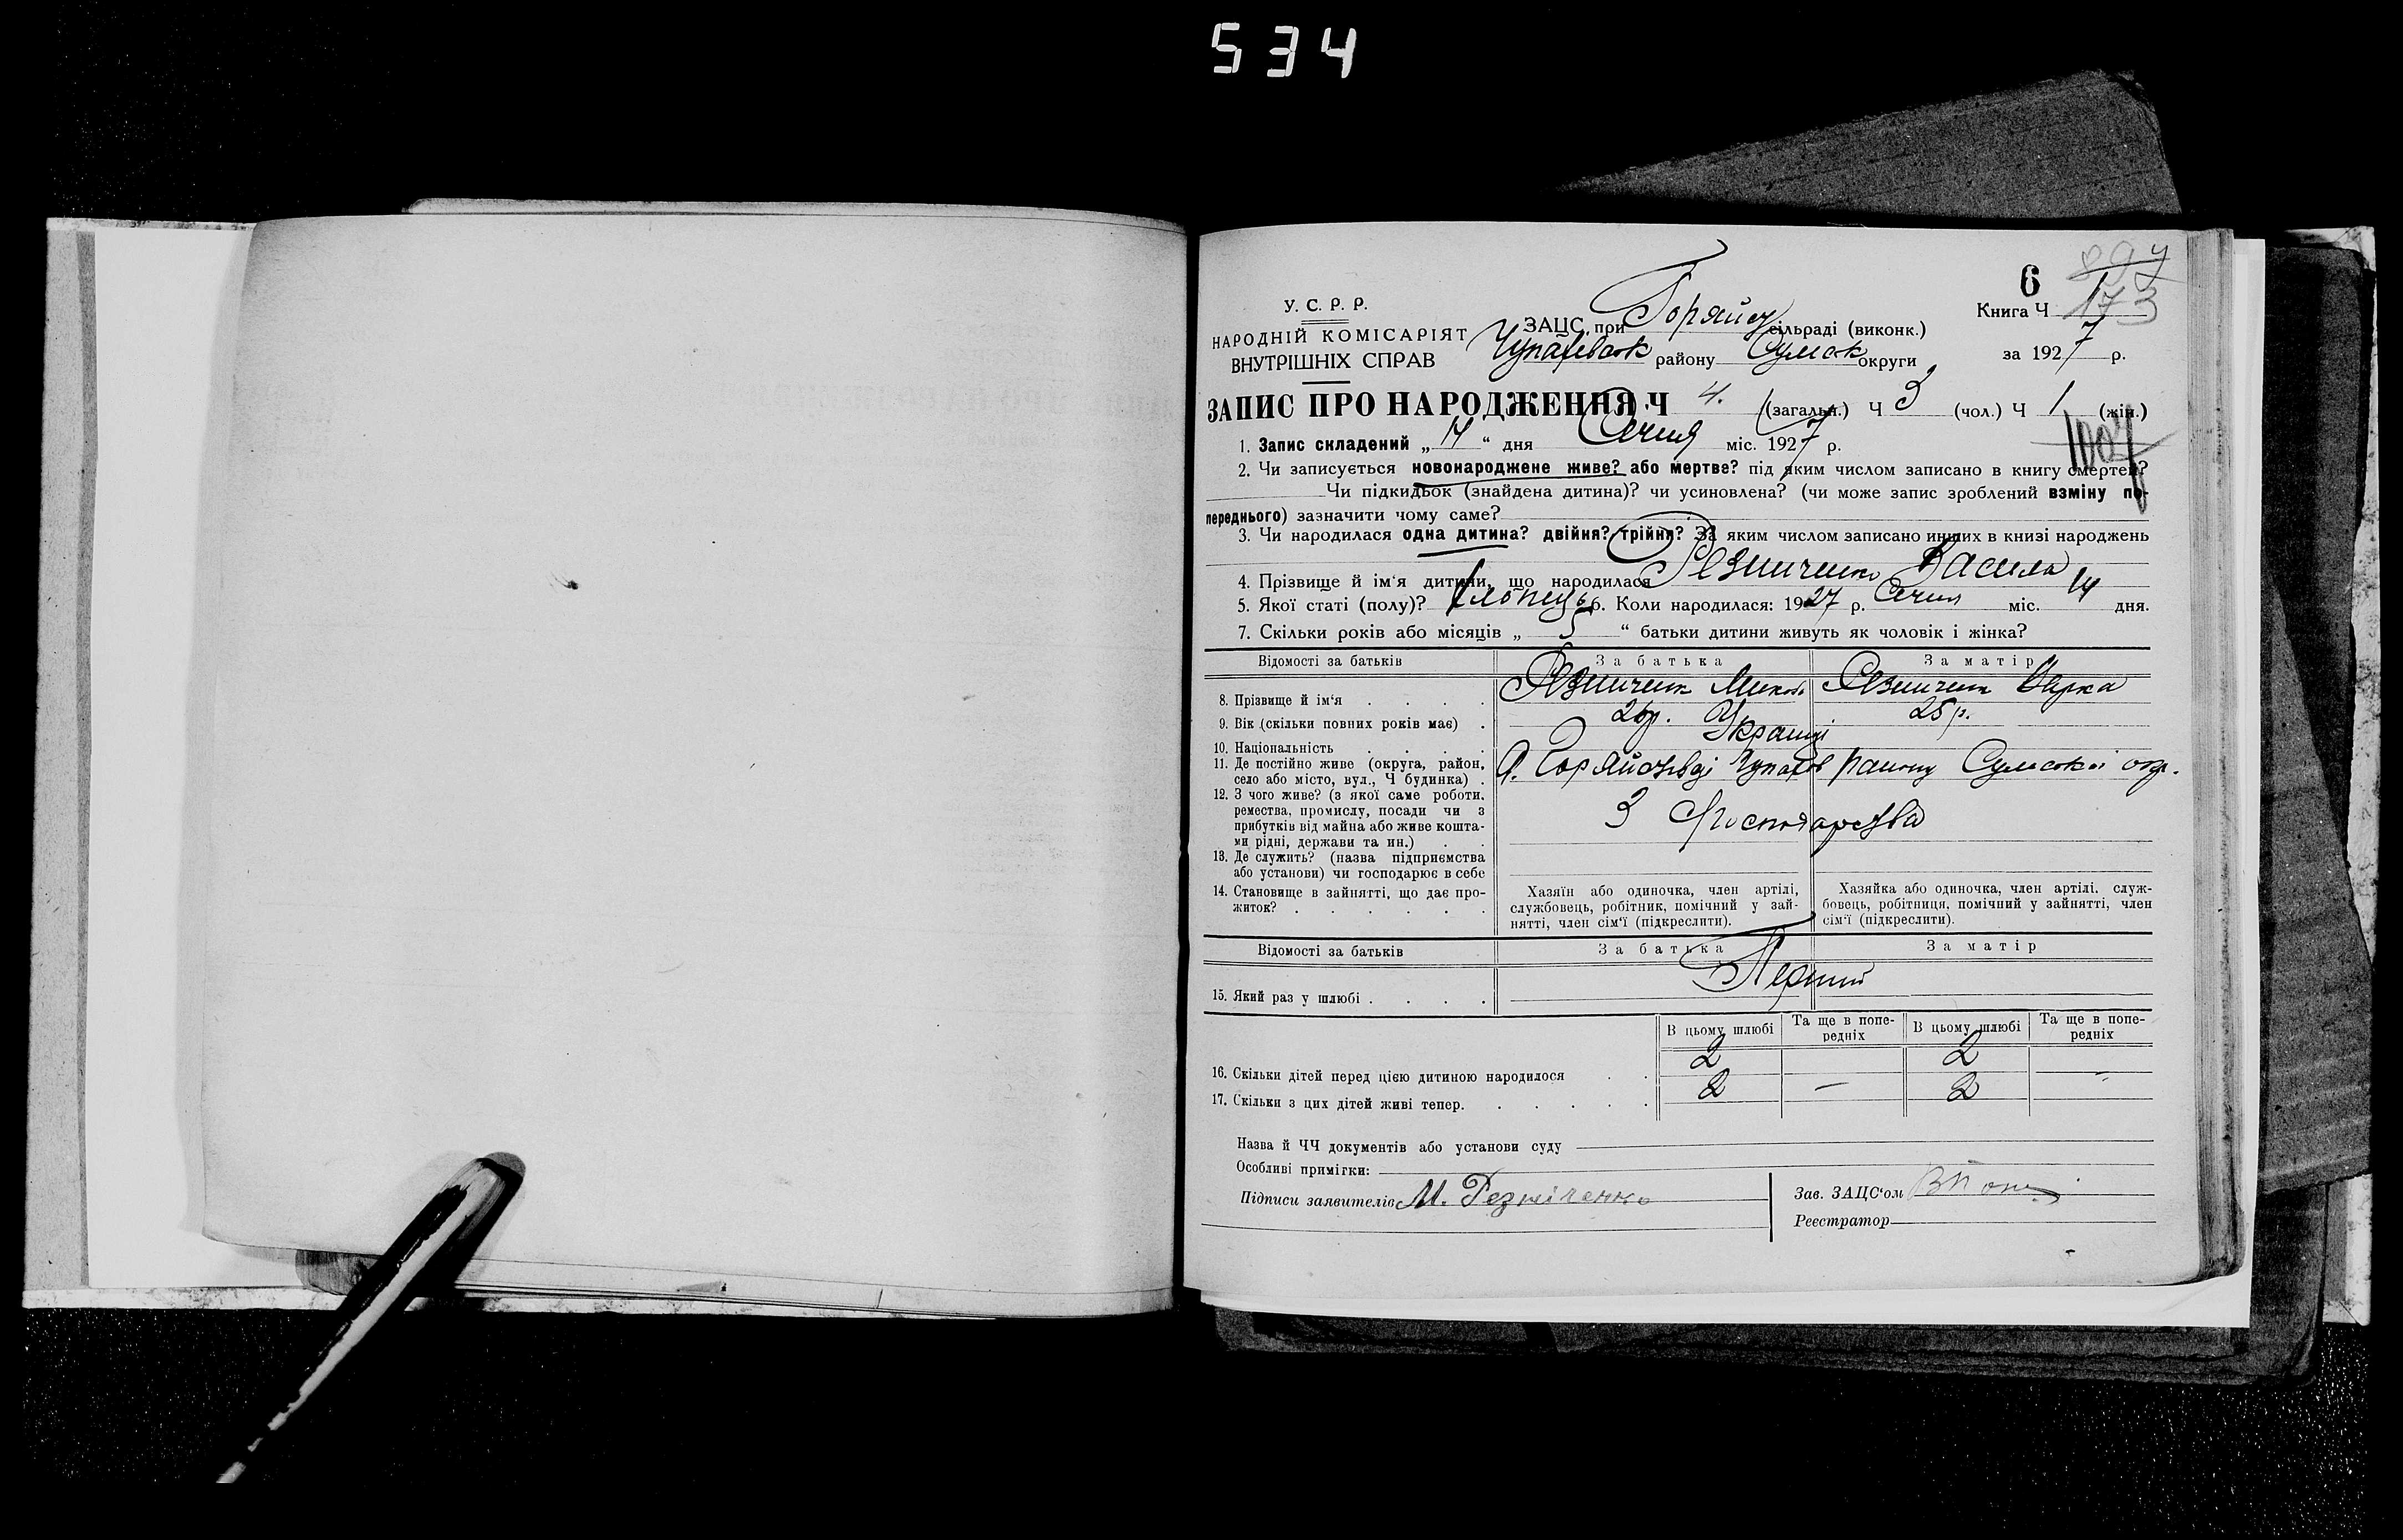 534
6
173
У. С. Р. Р.
НАРОДНІЙ КОМІСАРІЯТ
ВНУТРІШНІХ СПРАВ
ЗАЦС при Горяйст сільраді (виконк.)
Чупахівськ району Сумськ округи
Книга Ч
за 1927 р.
ЗАПИС ПРО НАРОДЖЕННЯ Ч 4. (загальн.) Ч 3 (чол.) Ч 1 (жін.)
1. Запис складений „14“ дня Січня міс. 1927 р.
2. Чи записується новонароджене живе? або мертве? під яким числом записано в книгу смертей?
Чи підкидьок (знайдена дитина)? чи усиновлена? (чи може запис зроблений взміну по-
переднього) зазначити чому саме?
3. Чи народилася одна дитина? двійня? трійня? За яким числом записано инших в книзі народжень
4. Прізвище й ім'я дитини, що народилася Резниченко Василь
5. Якої статі (полу)? Хлопець 6. Коли народилася: 1927 р. Січня міс. 14 дня.
7. Скільки років або місяців „ 5 “ батьки дитини живуть як чоловік і жінка?
Відомості за батьків За батька За матір
8. Прізвище й ім'я . . . . Резниченк Микол Резниченк Варка
9. Вік (скільки повних років має) . 26р. 25р.
10. Національність . . . . Українці
11. Де постійно живе (округа, район,
село або місто, вул., Ч будинка) .
район Сумської окр.
12. З чого живе? (з якої саме роботи,
ремества, промислу, посади чи з
прибутків від майна або живе кошта-
ми рідні, держави та ин.) . .
З Господарства
13. Де служить? (назва підприємства
або установи) чи господарює в себе
14. Становище в зайнятті, що дає про-
житок? . . . . . .
Хазяїн або одиночка, член артілі,
службовець, робітник, помічний у зай-
нятті, член сім'ї (підкреслити).
Хазяйка або одиночка, член артілі, служ-
бовець, робітниця, помічний у зайнятті, член
сім'ї (підкреслити).
Відомості за батьків За батька За матір
15. Який раз у шлюбі . . . . Перший
В цьому шлюбі Та ще в попе-редніх В цьому шлюбі Та ще в попе-редніх
16. Скільки дітей перед цією дитиною народилося . . 2 2
17. Скільки з цих дітей живі тепер. . . . . . 2 — 2 -
Назва й ЧЧ документів або установи суду
Особливі примітки:
Підписи заявителів М. Резніченко
Зав. ЗАЦС'ом
Реєстратор